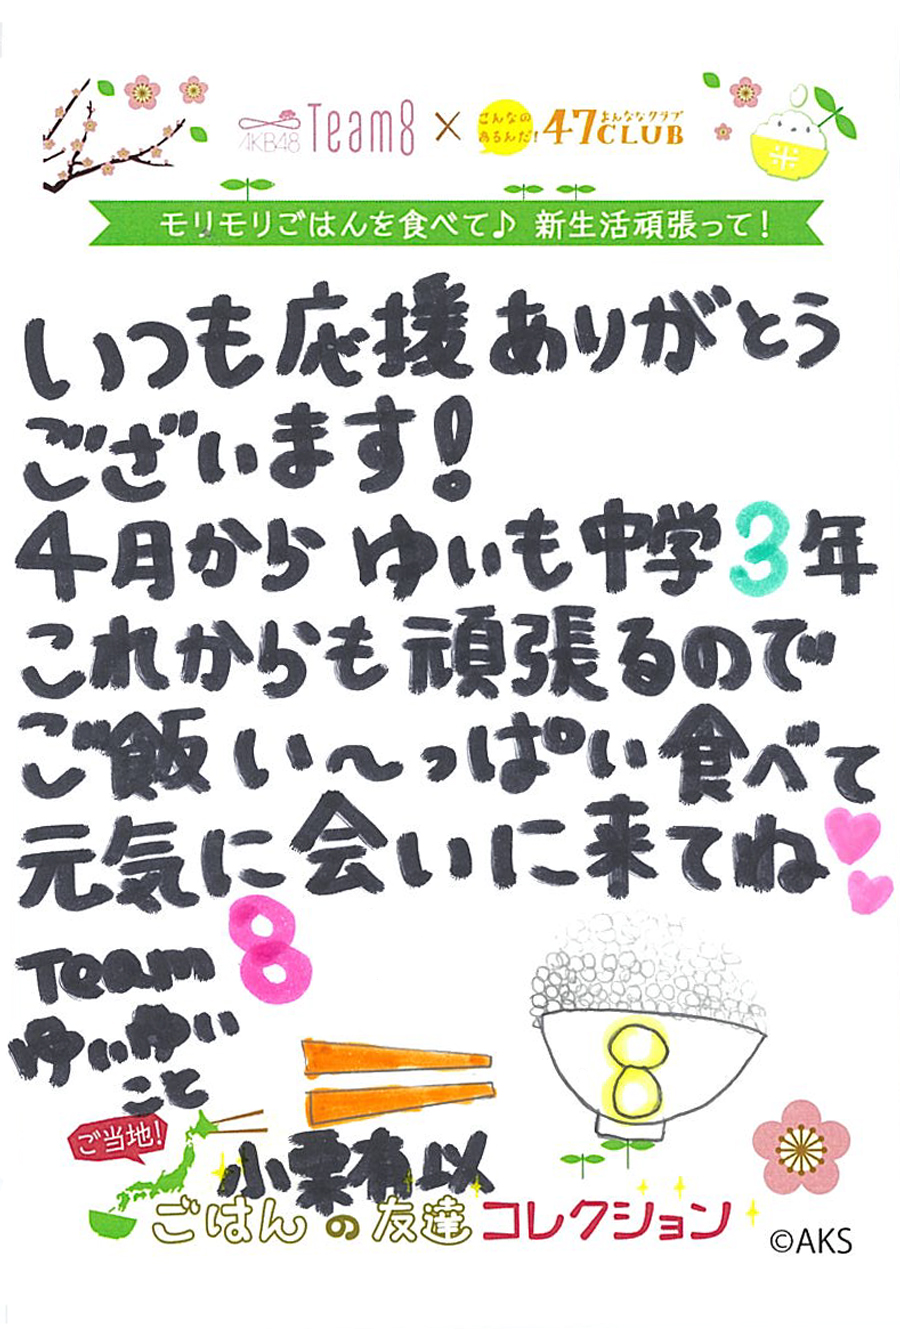 AKB48 Team8 × こんなの あるんだ! 47CLUB よんななクラブ
米
モリモリごはんを食べて♪ 新生活頑張って!
いつも応援ありがとう
ございます!
4月から ゆいも中学3年
これからも頑張るので
ご飯い〜っぱい食べて
元気に会いに来てね
Team 8
ゆいゆい
こと
8
小栗有以
ご当地!
ごはんの友達コレクション
©AKS